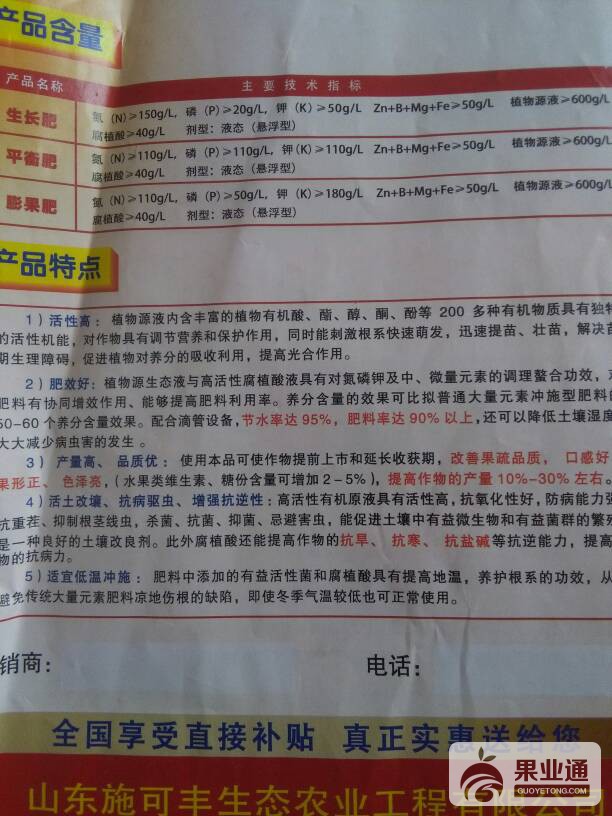 产品含量
产品名称 主要技术指标
生长肥 氮（N）≥150g/L，磷（P）≥20g/L，钾（K）≥50g/L Zn+B+Mg+Fe≥50g/L 植物源液≥600g/L
腐植酸≥40g/L 剂型：液态（悬浮型）
平衡肥 氮（N）≥110g/L，磷（P）≥110g/L，钾（K）≥110g/L Zn+B+Mg+Fe≥50g/L 植物源液≥600g/L
腐植酸≥40g/L 剂型：液态（悬浮型）
膨果肥 氮（N）≥110g/L，磷（P）≥50g/L，钾（K）≥180g/L Zn+B+Mg+Fe≥50g/L 植物源液≥600g/L
腐植酸≥40g/L 剂型：液态（悬浮型）
产品特点
1）活性高：植物源液内含丰富的植物有机酸、酯、醇、酮、酚等 200 多种有机物质具有独特
的活性机能，对作物具有调节营养和保护作用，同时能刺激根系快速萌发，迅速提苗、壮苗，解决苗
期生理障碍，促进植物对养分的吸收利用，提高光合作用。
2）肥效好：植物源生态液与高活性腐植酸液具有对氮磷钾及中、微量元素的调理螯合功效，对
肥料有协同增效作用、能够提高肥料利用率。养分含量的效果可比拟普通大量元素冲施型肥料的
50-60 个养分含量效果。配合滴管设备，节水率达 95%，肥料率达 90% 以上，还可以降低土壤湿度
大大减少病虫害的发生。
3） 产量高、 品质优： 使用本品可使作物提前上市和延长收获期，改善果疏品质， 口感好
果形正、 色泽亮，（水果类维生素、糖份含量可增加 2－5%），提高作物的产量 10%-30% 左右。
4）活土改壤、抗病驱虫、增强抗逆性：高活性有机原液具有活性高，抗氧化性好，防病能力强
抗重茬、抑制根茎线虫，杀菌、抗菌、抑菌、忌避害虫，能促进土壤中有益微生物和有益菌群的繁殖
是一种良好的土壤改良剂。此外腐植酸还能提高作物的抗旱、 抗寒、 抗盐碱等抗逆能力，提高
物的抗病力。
5）适宜低温冲施： 肥料中添加的有益活性菌和腐植酸具有提高地温，养护根系的功效，从
避免传统大量元素肥料凉地伤根的缺陷，即使冬季气温较低也可正常使用。
销商： 电话：
全国享受直接补贴 真正实惠送给您
山东施可丰生态农业工程有限公司
果业通
GUOYETONG.COM